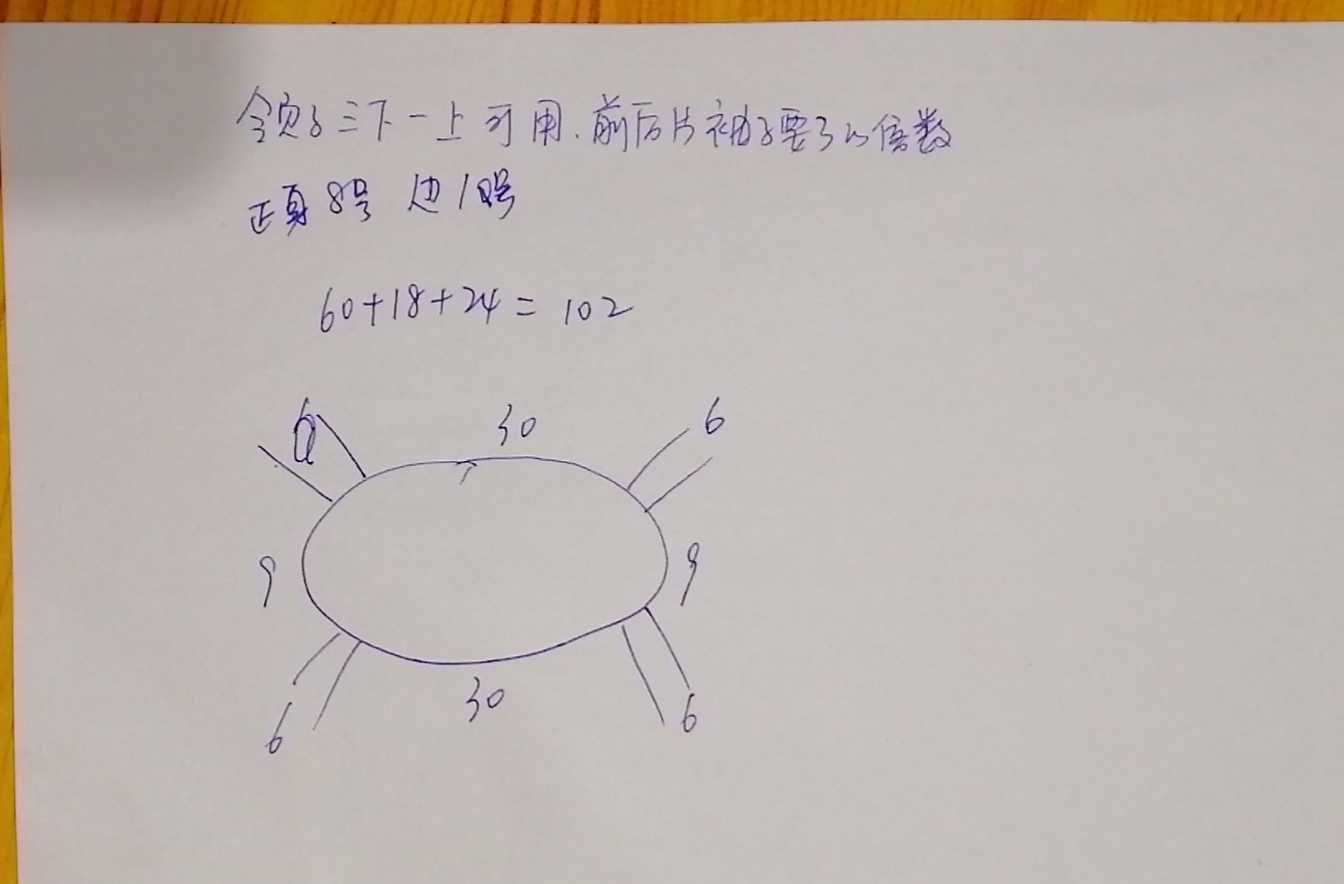 领子三下一上可用.前后片袖子要3的倍数
正身8号 边10号
60+18+24=102
6 30 6
9 9
6 30 6